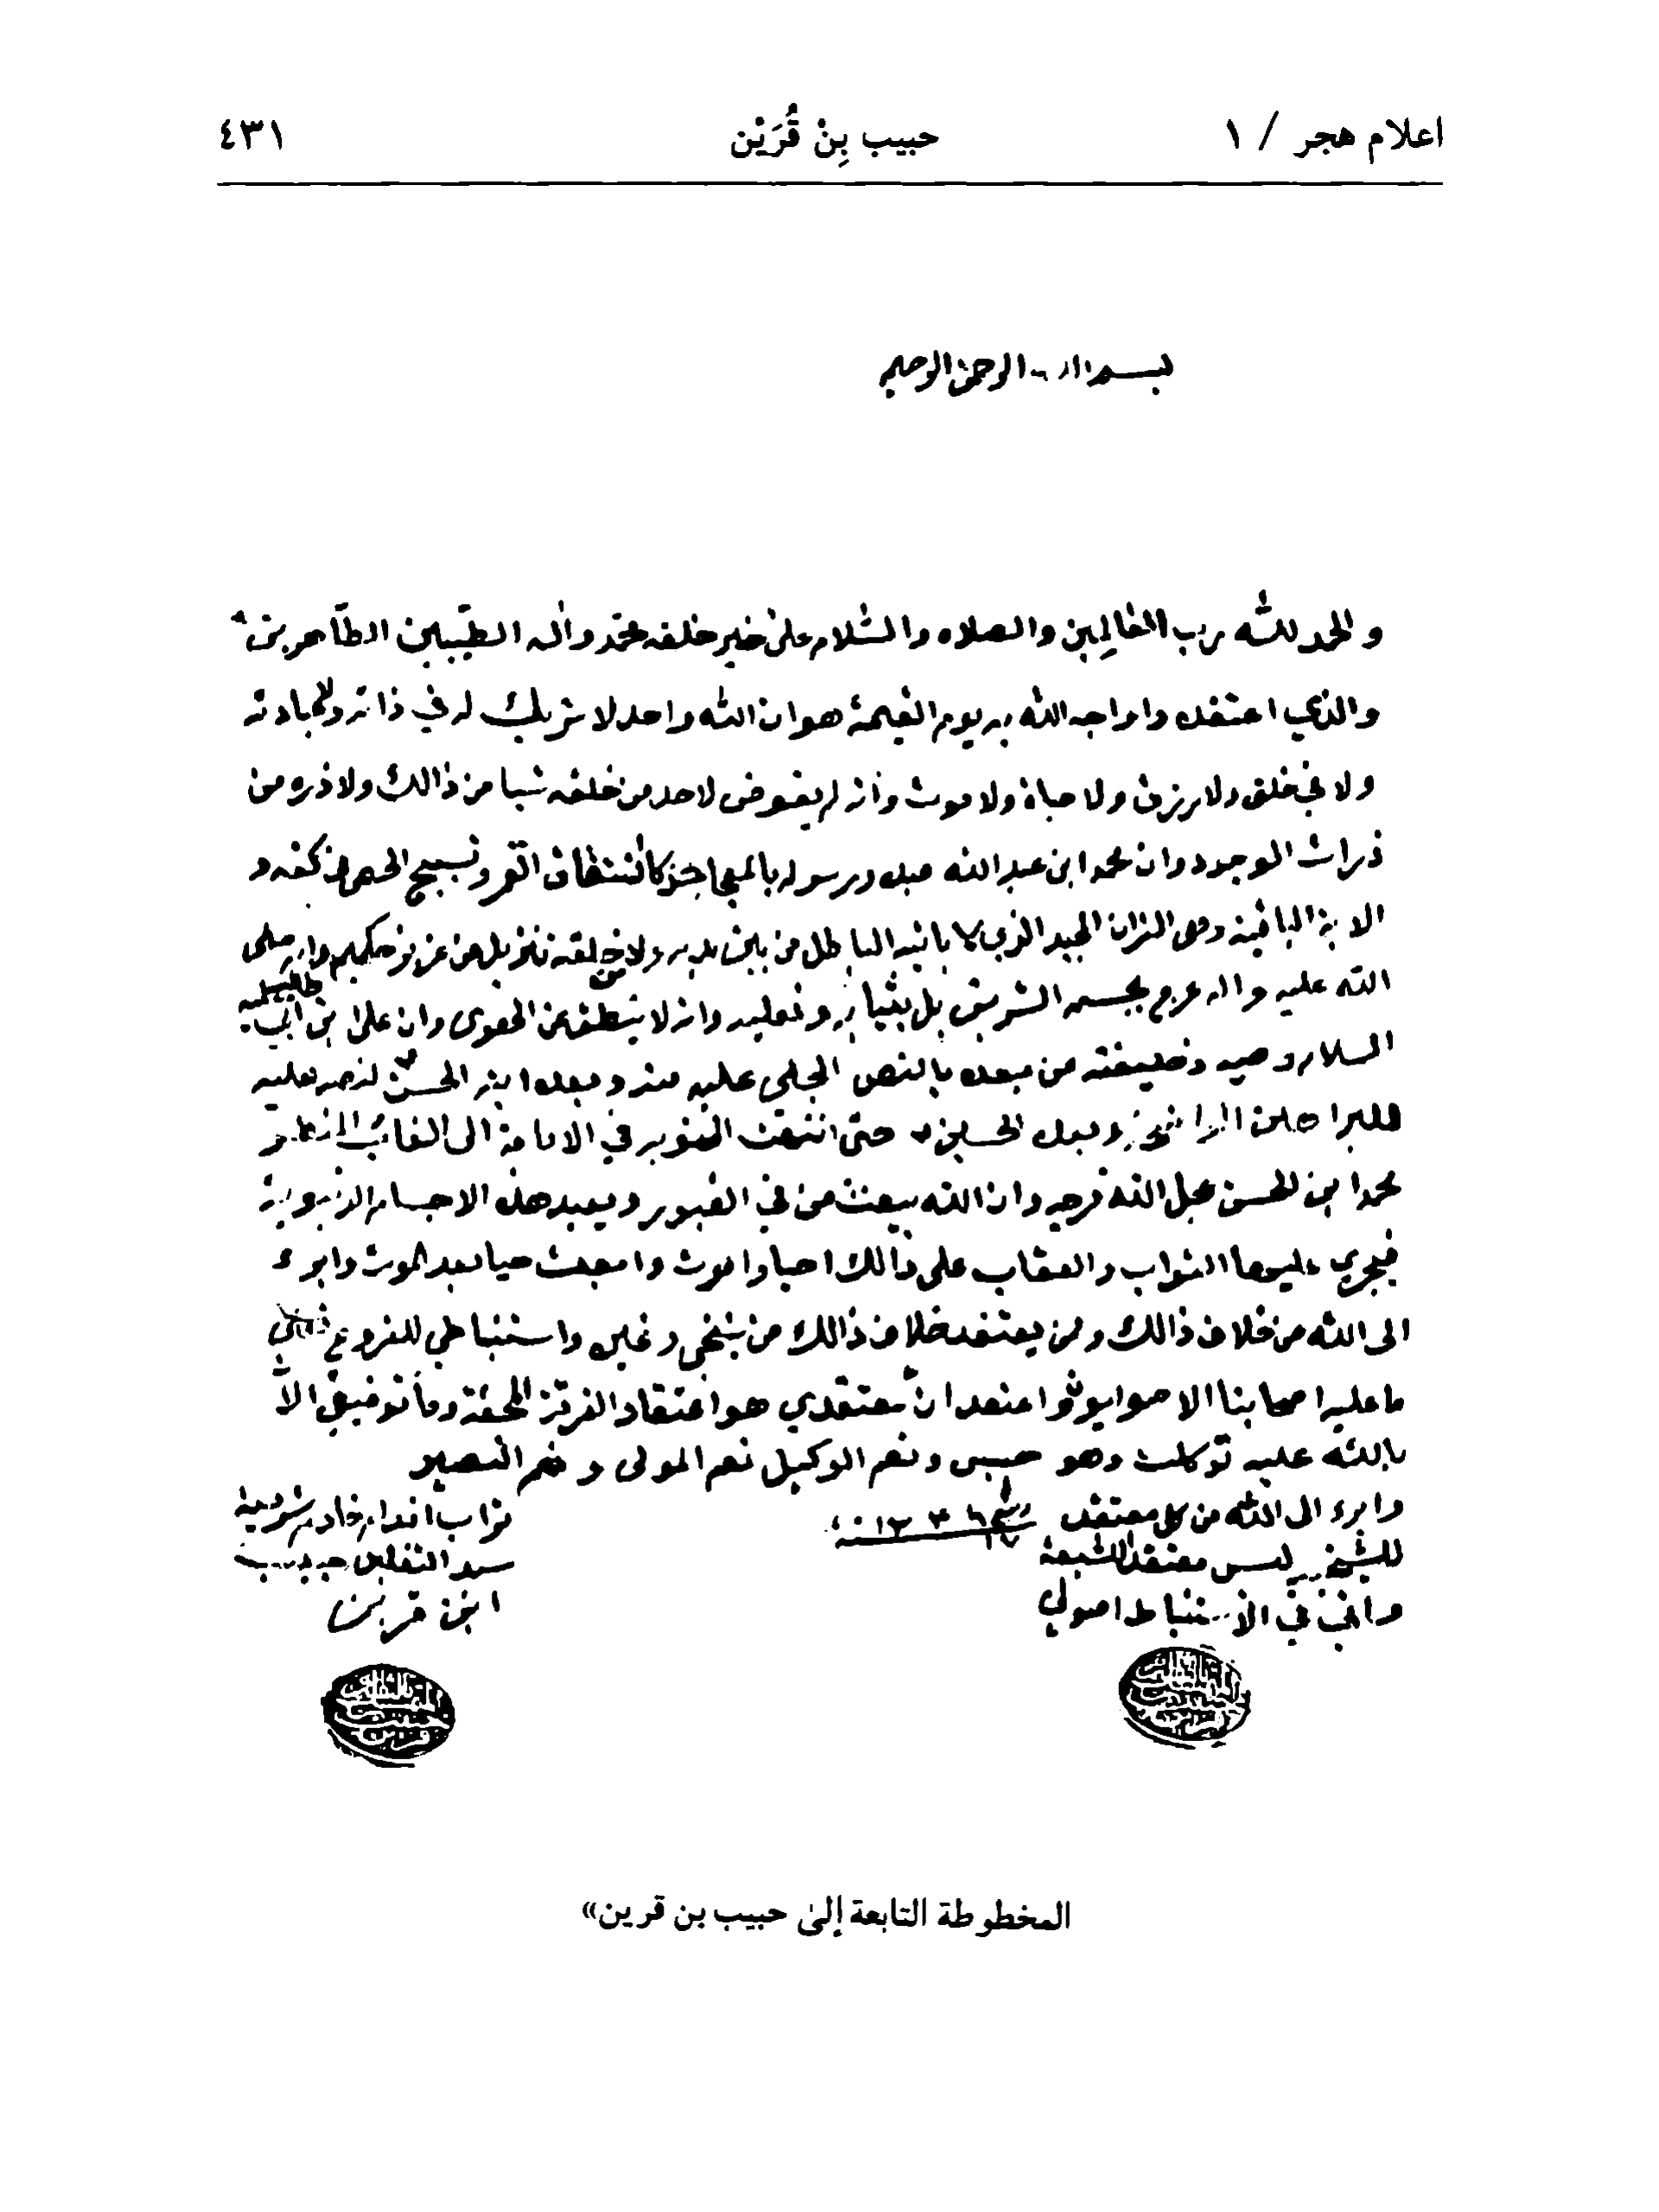 اعلام هجر / ١
حبيب بِنْ قُرَيْن
٤٣١
بسم الله الرحمن الرحيم
والحمد لله رب العالمين والصلاه والسّلام على خير خلقه محمّد وآله الطيّبين الطّاهرين
والذي اعتقده واواجه الله به يوم القيمة هو ان الله واحد لا شريك له في ذاته ولا عبادته
ولا في خلق ولا رزق ولا حياة ولا موت وأنه لم يفوض لاحد من خلقه شيا من ذالك ولا ذره من
ذرات الوجود وان محمد ابن عبد الله عبده ورسوله بالمعاجز كانشقاق القمر وتسبيح الحصى في كفه و
الاية الباقية وهي القران المجيد الذي لا ياتيه الباطل من بين يديه ولا من خلفه تنزيل من عزيز حكيم وانه صلى
الله عليه واله عرج بجسمه الشريف بل بثيابه ونعليه وانه لا ينطق عن الهوى وان علي بن ابي طالب عليه
السلام وصيه وخليفته من بعده بالنص الجلي عليه منه وبعده ابنه الحسن لنصه عليه
وبعده الحسين حتى انتهت النوبه في الامامة الى الغائب المنتظر
محمد ابن الحسن عجل الله فرجه وان الله يبعث من في القبور ويعيد هذه الاجسام الدنيوية
فيجري عليها الثواب والعقاب على ذالك احيا واموت وابعث حيا بعد الموت وابرء
الى الله من خلاف ذالك ومن يعتقد خلاف ذالك من شيخي وغيره واستنباطي للفروع
ما عليه اصحابنا الاصوليون واعتقد انّ معتقدي هو اعتقاد الفرقة المحقة وما توفيقي الّا
بالله عليه توكلت وهو حسبي ونعم الوكيل نعم المولى ونعم النصير
وابرء الى الله من كل معتقد
للشيخ ليس معتقد للشيعة
واني في الاستنباط اصولي
تراب اقدام خادم شريعة
سيد الثقلين حبيب
ابن قرين
المخطوطة التابعة إلىٰ حبيب بن قرين»